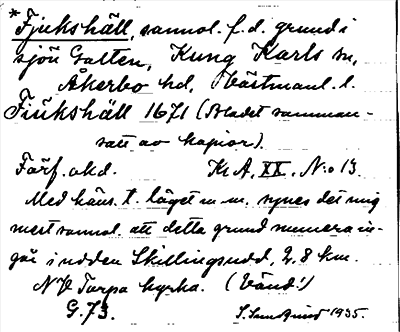 *Fjukshäll, sannol. f.d. grund i
sjön Galten, Kung Karls sn,
Åkerbo hd, Västmanl. l.
Fiukshäll 1671 (Bladet samman-
satt av kopior).
Förf. okd. K.A. XX, N:o 13.
Med häns. t. läget m.m. synes det mig
mest sannol. att detta grund numera in-
går i udden Skillingsudd, 2.8 km.
NV Torpa kyrka. (Vänd!)
G. 73. 1935.